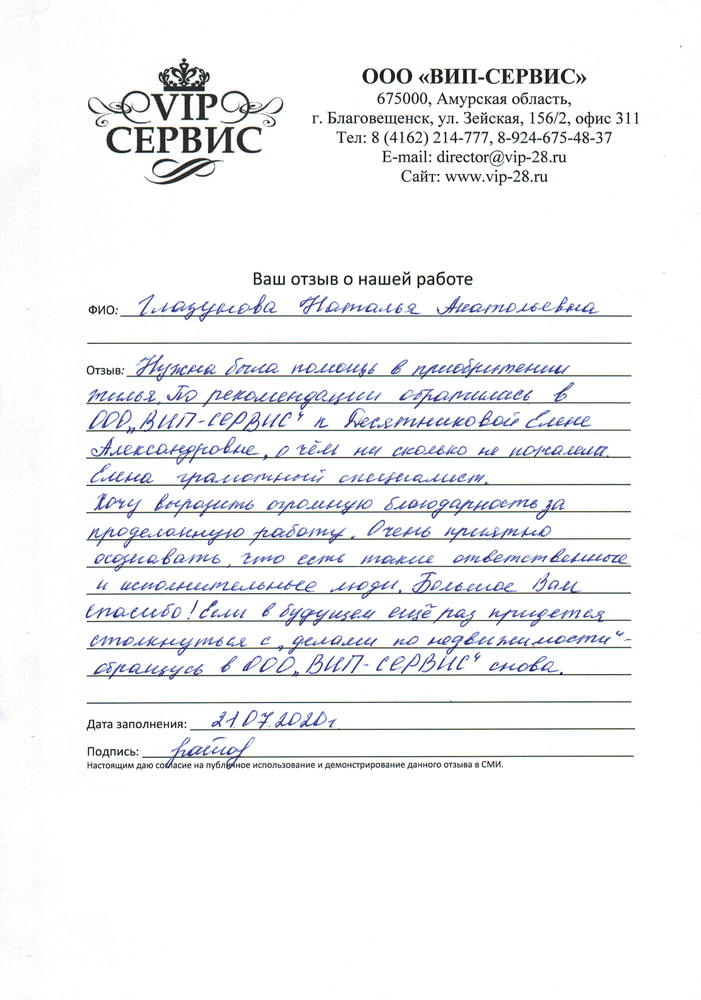 VIP
СЕРВИС
ООО «ВИП-СЕРВИС»
675000, Амурская область,
г. Благовещенск, ул. Зейская, 156/2, офис 311
Тел: 8 (4162) 214-777, 8-924-675-48-37
E-mail: director@vip-28.ru
Сайт: www.vip-28.ru
Ваш отзыв о нашей работе
ФИО: Глазунова Наталья Анатольевна
Отзыв: Нужна была помощь в приобритении
жилья. По рекомендации обратилась в
ООО „ВИП-СЕРВИС“ к Десятниковой Елене
Александровне, о чём ни сколько не пожалела.
Елена грамотный специалист.
Хочу выразить огромную благодарность за
проделанную работу. Очень приятно
осознавать, что есть такие ответственные
и исполнительные люди. Большое Вам
спасибо! Если в будущем ещё раз придется
столкнуться с „делами по недвижимости“ -
обращусь в ООО „ВИП-СЕРВИС“ снова.
Дата заполнения: 21.07.2020г
Подпись:
Настоящим даю согласие на публичное использование и демонстрирование данного отзыва в СМИ.